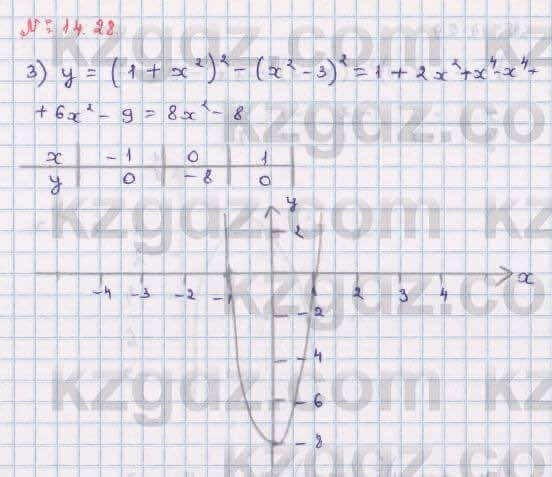 № 14.28.
3) y = (1 + x²)² - (x² - 3)² = 1 + 2x² + x⁴ - x⁴ +
+ 6x² - 9 = 8x² - 8
x -1 0 1
y 0 -8 0
y
2
-4 -3 -2 -1 1 2 3 4 x
-2
-4
-6
-8
kzgdz.com
kzgdz.com
kzgdz.com
kzgdz.com